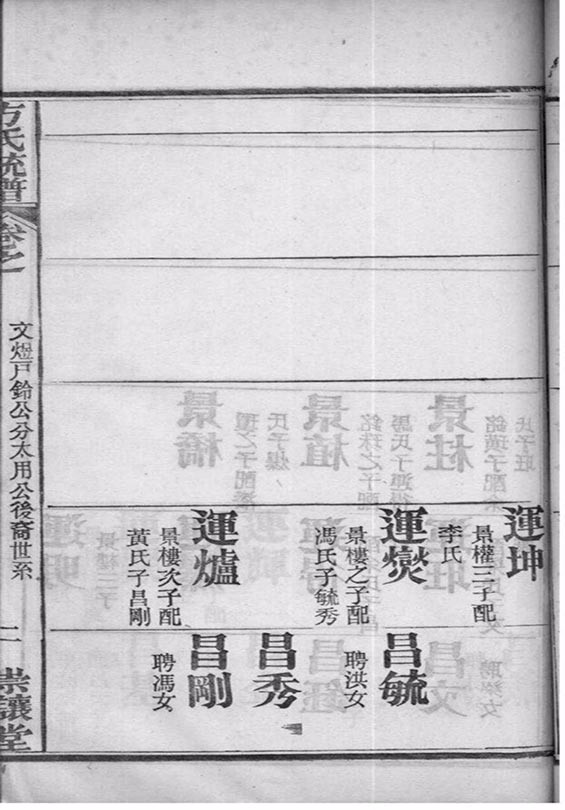 運坤
景權三子配
李氏
運爕
景樓之子配
馮氏子毓秀
運爐
景樓次子配
黃氏子昌剛
昌毓
聘洪女
昌秀
昌剛
聘馮女
方氏統譜
卷之
文煜戸鈴公分太用公後裔世系
二
崇讓堂